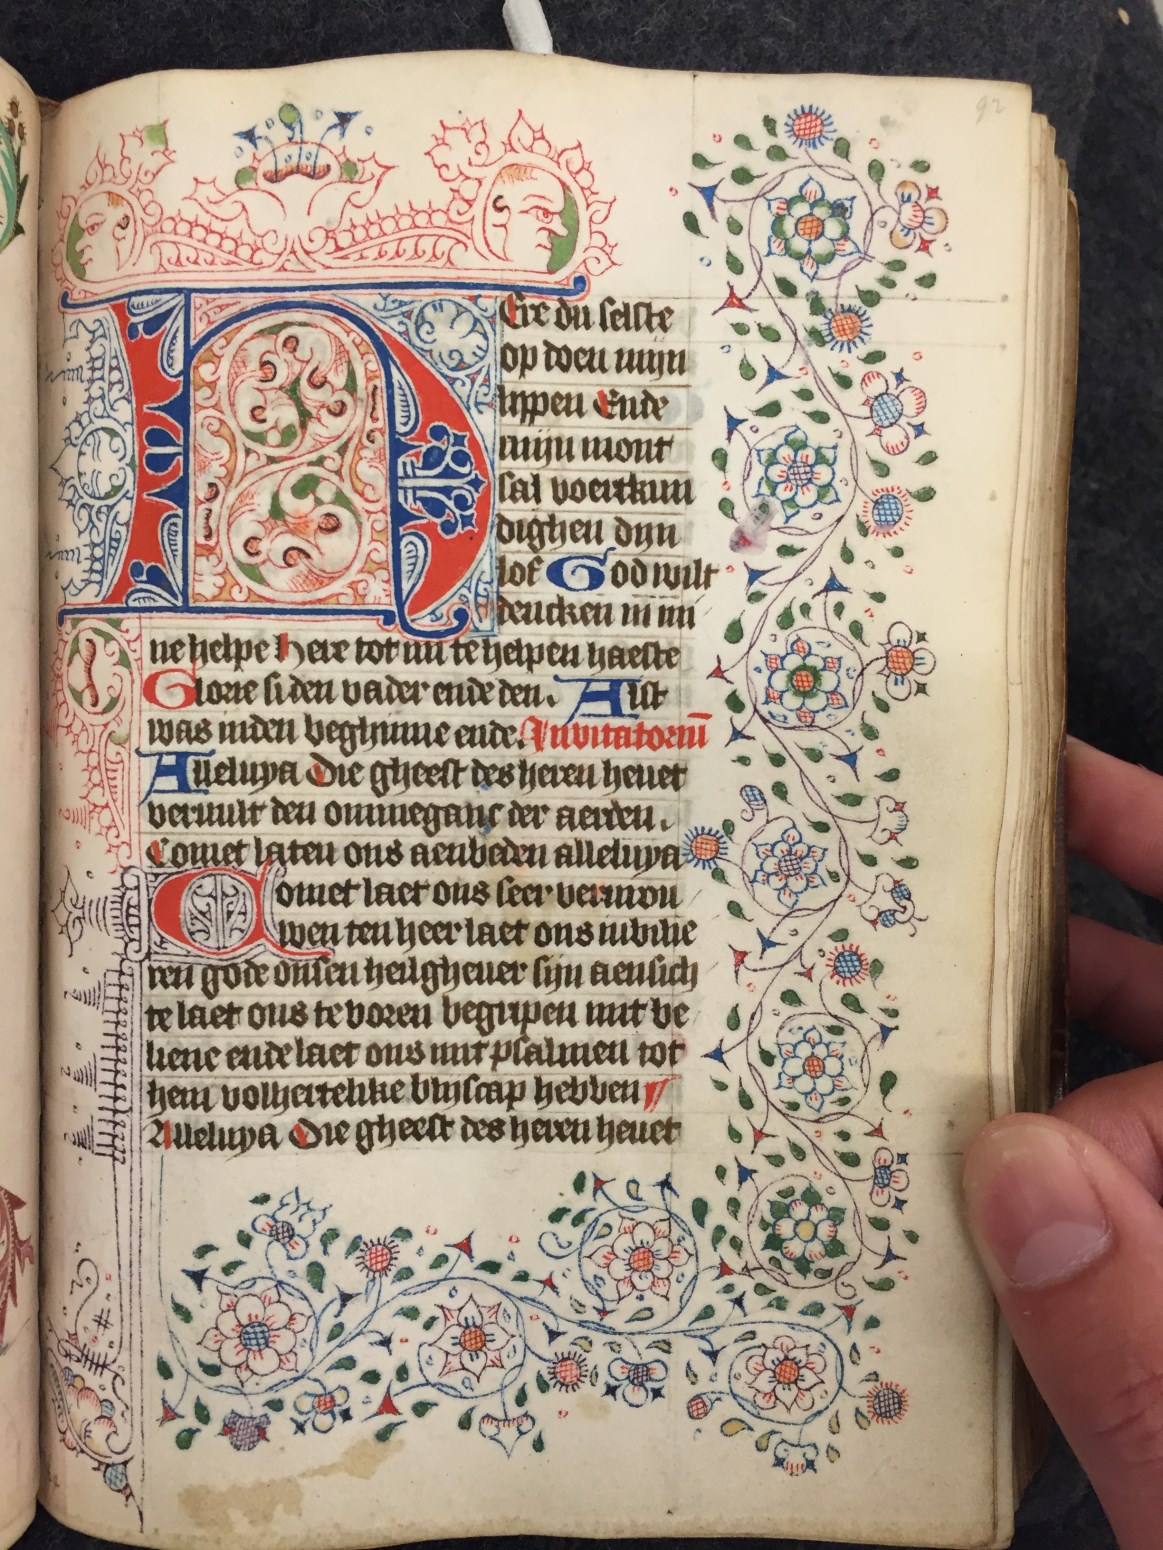 92
HEre du selste
op doen mijn
lippen Ende
mijn mont
sal voertkun
dighen dijn
lof God wilt
dencken in mi
ne helpe Here tot mi te helpen haeste
Glorie si den vader ende den. Alst
was inden beghinne ende. Invitatoriū
Alleluya Die gheest des heren heuet
veruult den ommeganc der aerden.
Comet laten ons aenbeden alleluya
Comet laet ons seer vermou
wen ten heer laet ons iubilie
ren gode onsen heilgheuer sijn aensich
te laet ons te voren begripen mit be
liene ende laet ons mit psalmen tot
hem volhertelike blijscap hebben
Alleluya Die gheest des heren heuet